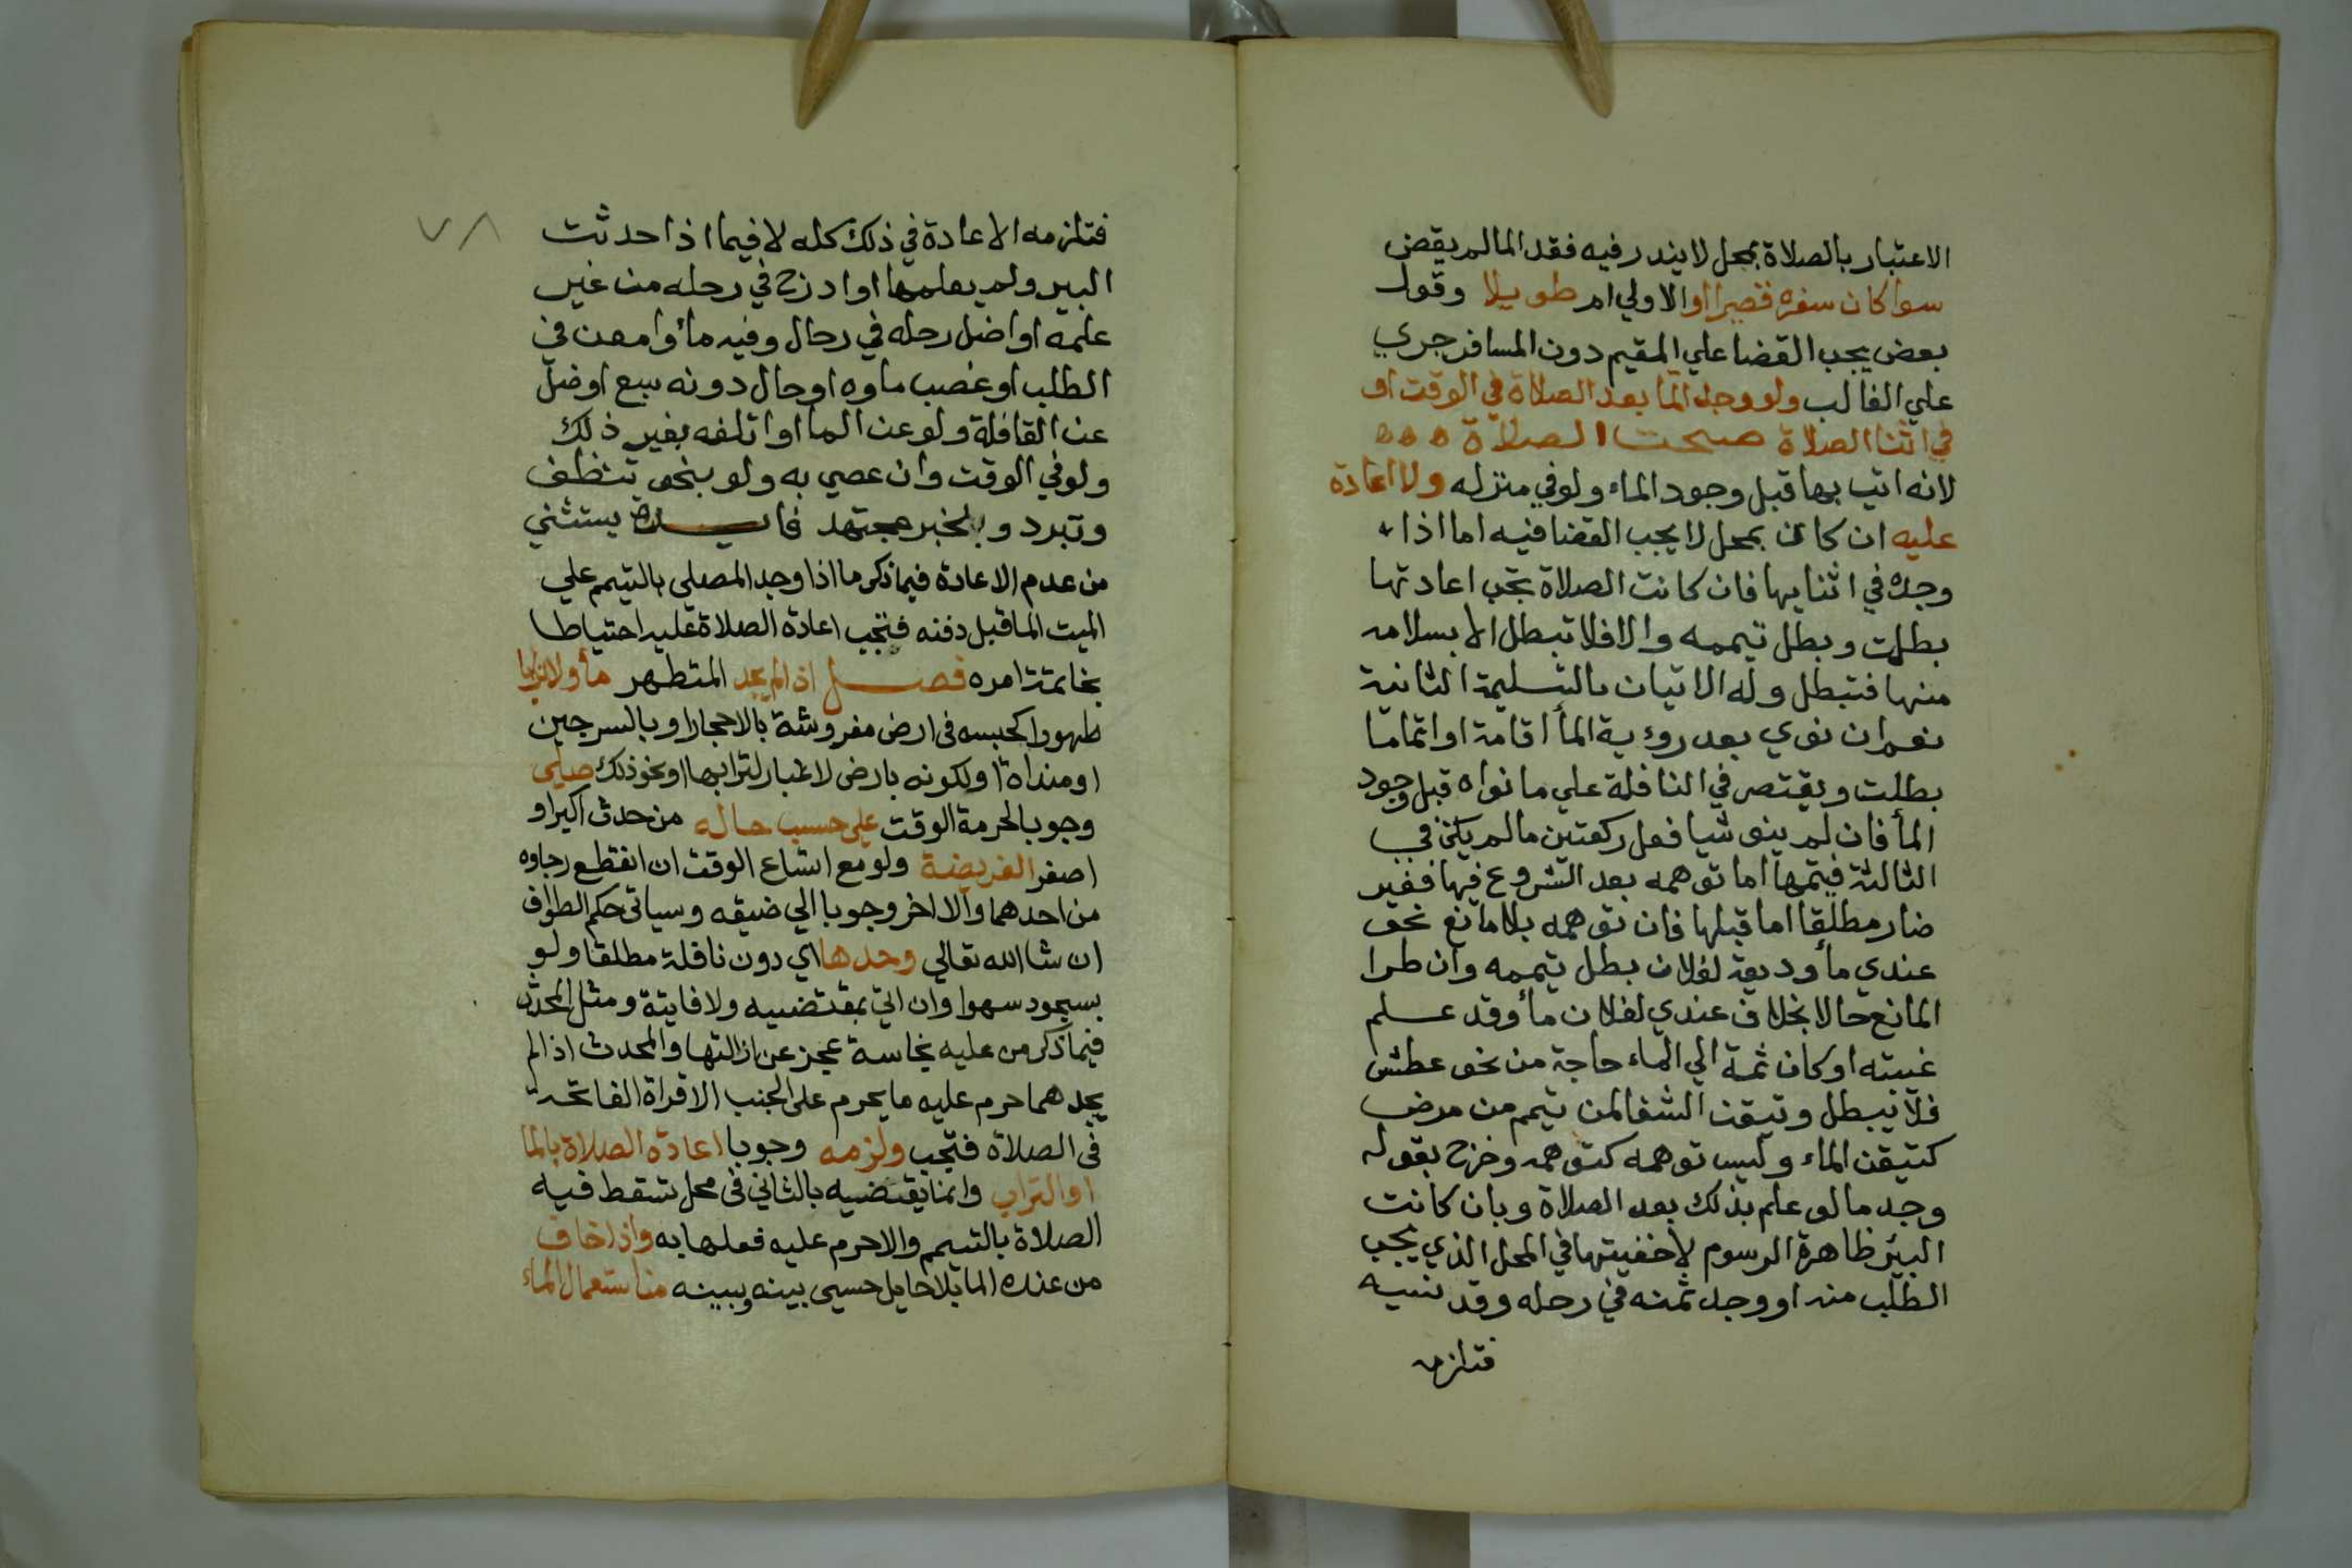 الاعتبار بالصلاة بمحل لايندر فيه فقد الما لم يقض
سوا كان سفره قصيرا او الاولي ام طويلا وقول
بعض يجب القضا علي المقيم دون المسافر جري
علي الغالب ولو وجد الما بعد الصلاة في الوقت او
في اثنا الصلاة صحت الصلاة ه ه ه
لانه اتي بها قبل وجود الماء ولو في منزله ولا اعادة
عليه ان كان بمحل لا يجب القضا فيه اما اذا
وجده في اثنايها فان كانت الصلاة تجب اعادتها
بطلت وبطل تيممه والا فلا تبطل الا بسلامه
منها فتبطل وله الاتيان بالتسليمة الثانية
نعم ان نوي بعد روءية الما اقامة او اتماما
بطلت ويقتصر في النافلة علي ما نواه قبل وجود
الما فان لم ينو شيا فعل ركعتين ما لم يكن في
الثالثة فيتمها اما توهمه بعد الشروع فيها فغير
ضار مطلقا اما قبلها فان توهمه بلا مانع نحو
عندي ما وديعة لفلان بطل تيممه وان طرا
المانع حالا بخلاف عندي لفلان ما وقد علم
غيبته او كان ثمة الي الماء حاجة من نحو عطش
فلا تبطل وتيقن الشفا لمن تيمم من مرض
كتيقن الماء وليس توهمه كتوهمه وخرج بقوله
وجد ما لو علم بذلك بعد الصلاة وبان كانت
البئر ظاهرة الرسوم لا خفيتها في المحل الذي يجب
الطلب منه او وجد ثمنه في رحله وقد نسيه
فتلزمه
٧٨
فتلزمه الاعادة في ذلك كله لا فيما اذا حدثت
البير ولم يعلمها او ادرج في رحله من غير
علمه او اضل رحله في رحال وفيه ما وامعن في
الطلب او غصب ماوه او حال دونه سبع او ضل
عن القافلة ولو عن الما او اتلفه بغير ذلك
ولو في الوقت وان عصي به ولو بنحو تنظف
وتبرد وبالخبر مجتهد فايدة يستثني
من عدم الاعادة فيما ذكر ما اذا وجد المصلي بالتيمم علي
الميت الما قبل دفنه فتجب اعادة الصلاة عليه احتياطا
بخاتمة امره فصل اذا لم يجد المتطهر ما ولا ترابا
طهورا كحبسه في ارض مفروشة بالاحجار او بالسرجين
او منداة او لكونه بارض لاغبار لترابها او نحو ذلك صلي
وجوبا لحرمة الوقت علي حسب حاله من حدث اكبر او
اصغر الفريضة ولو مع اتساع الوقت ان انقطع رجاوه
من احدهما والا اخر وجوبا الي ضيقه وسياتي حكم الطواف
ان شا الله تعالي وحدها اي دون نافلة مطلقا ولو
بسجود سهوا وان اتي بمقتضيه ولا فايتة ومثل المحدث
فيما ذكر من عليه نجاسة عجز عن ازالتها والمحدث اذا لم
يجدهما حرم عليه ما يحرم علي الجنب الا قراة الفاتحة
في الصلاة فتجب ولزمه وجوبا اعادة الصلاة بالما
او التراب وانما يقتضيه بالثاني في محل تسقط فيه
الصلاة بالتيمم والا حرم عليه فعلها به واذا خاف
من عنده الما بلا حايل حسي بينه وبينه من استعمال الماء